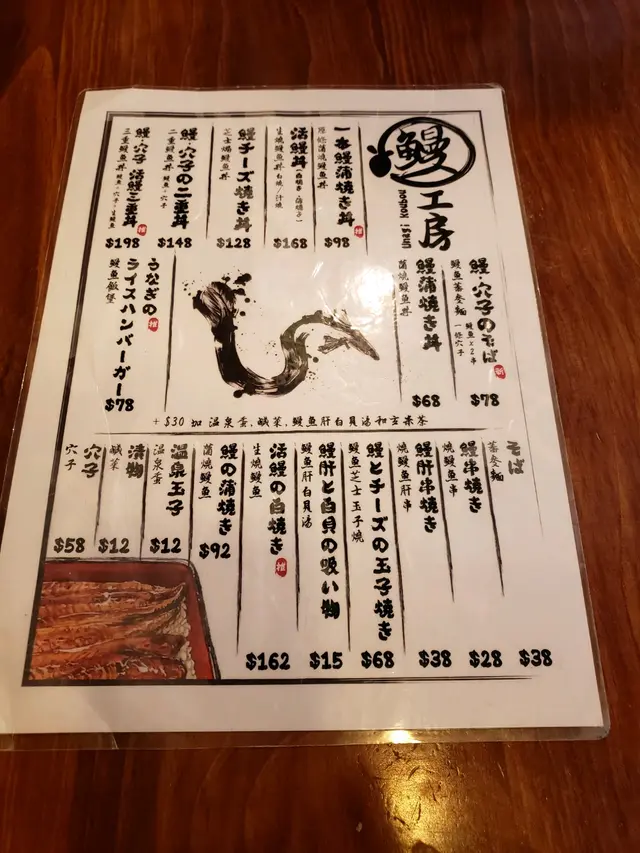 鰻
工房
UNAGI KOUBOU
一本鰻蒲焼き丼
原條蒲燒鰻魚丼
推
$98
活鰻丼(白焼き・蒲焼き)
生燒鰻魚丼 白燒/汁燒
$168
鰻チーズ焼き丼
芝士焗鰻魚丼
$128
鰻・穴子の二重丼
二重鰻魚丼 鰻魚・穴子
$148
鰻・穴子 活鰻三重丼
三重鰻魚丼 鰻魚・穴子・生鰻魚
推
$198
鰻・穴子のそば
鰻魚蕎麥麵 鰻魚x2串 一條穴子
新
$78
鰻蒲焼き丼
蒲燒鰻魚丼
$68
うなぎの
ライスハンバーガー
鰻魚飯堡
推
$78
+$30 加 溫泉蛋、鹹菜、鰻魚肝白貝湯和玄米茶
そば
蕎麥麵
$38
鰻串焼き
燒鰻魚串
$28
鰻肝串焼き
燒鰻魚肝串
$38
鰻とチーズの玉子焼き
鰻魚芝士玉子燒
$68
鰻肝と白貝の吸い物
鰻魚肝白貝湯
$15
活鰻の白焼き
生燒鰻魚
推
$162
鰻の蒲焼き
蒲燒鰻魚
$92
温泉玉子
溫泉蛋
$12
漬物
鹹菜
$12
穴子
穴子
$58